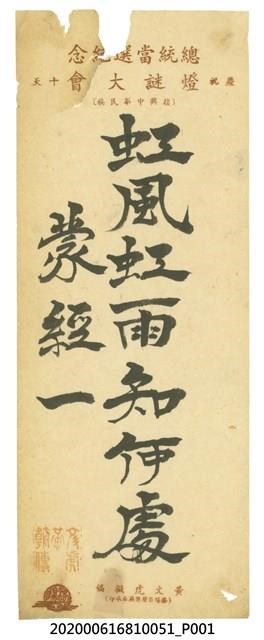 總統當選紀念
慶祝燈謎大會十天
虹風虹雨知何處
蒙經一
黃文虎擬稿
202000616810051_P001